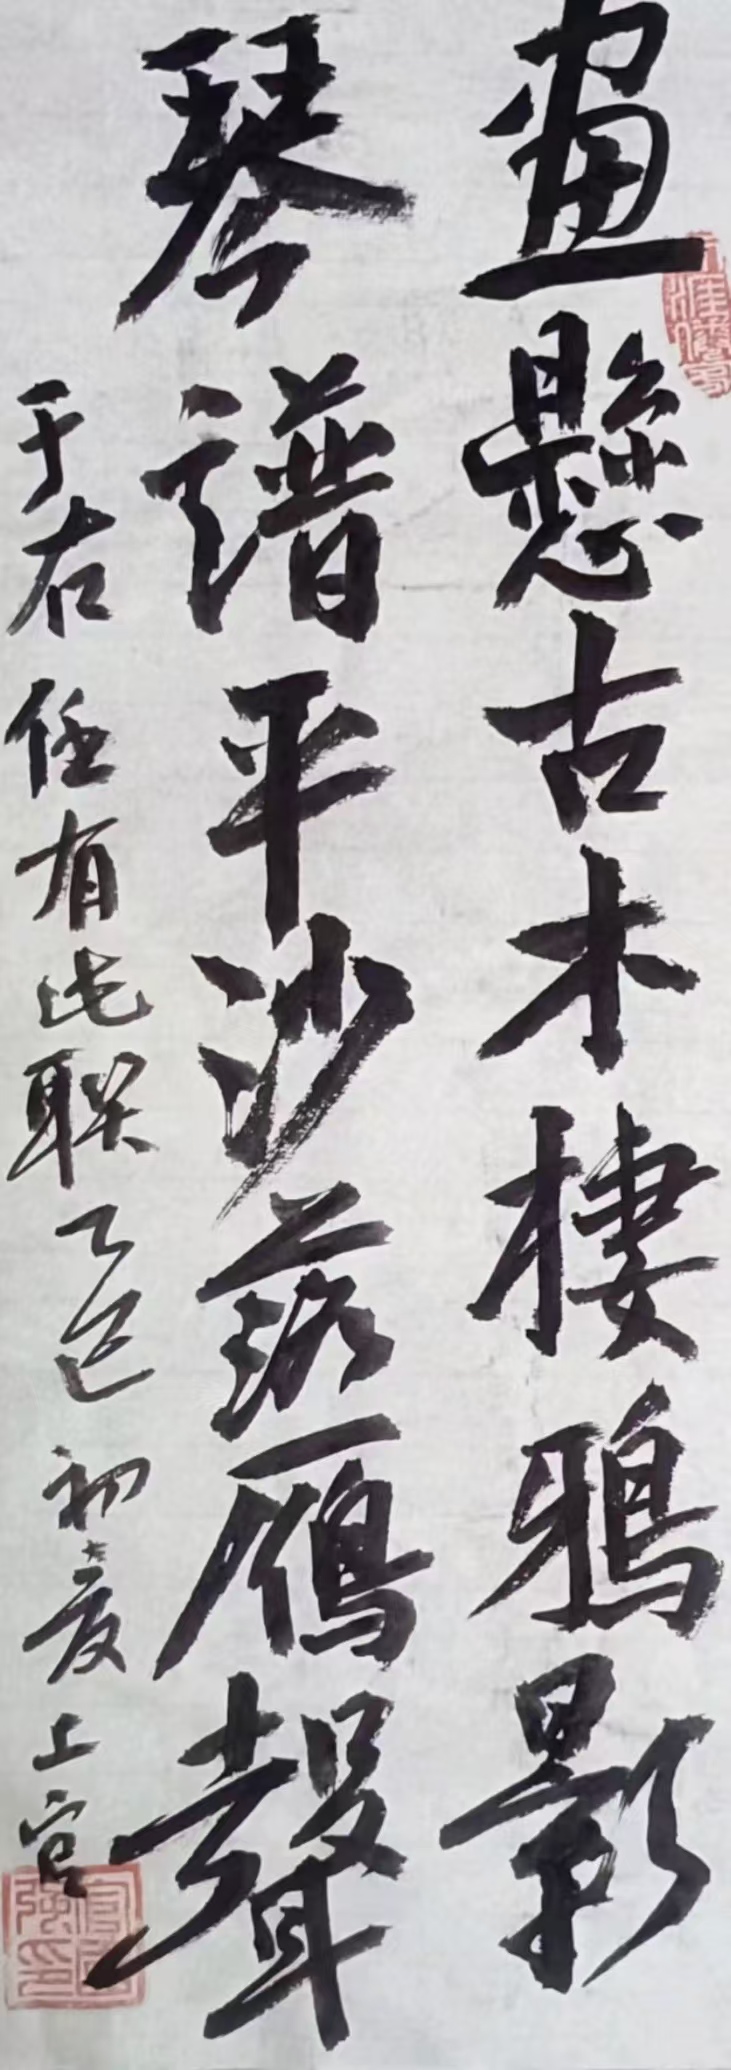 畫懸古木棲鴉影
琴譜平沙落鴈聲
于右任有此联乙巳初夏上官